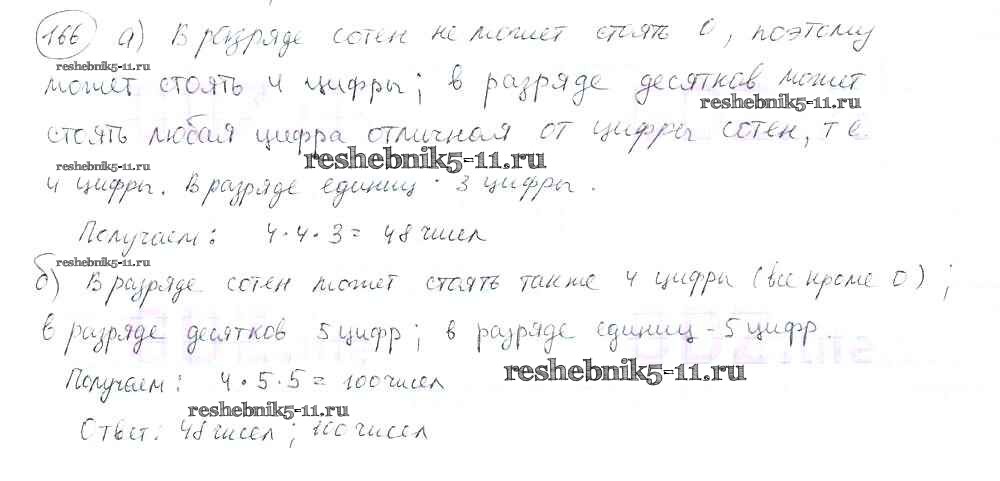 166 а) В разряде сотен не может стоять 0, поэтому
reshebnik5-11.ru
может стоять 4 цифры; в разряде десятков может
reshebnik5-11.ru
стоять любая цифра отличная от цифры сотен, т е.
reshebnik5-11.ru
reshebnik5-11.ru
4 цифры. В разряде единиц - 3 цифры.
Получаем: 4·4·3 = 48 чисел
reshebnik5-11.ru
б) В разряде сотен может стоять также 4 цифры (все кроме 0);
в разряде десятков 5 цифр; в разряде единиц - 5 цифр.
reshebnik5-11.ru
Получаем: 4·5·5 = 100 чисел
reshebnik5-11.ru
Ответ: 48 чисел; 100 чисел